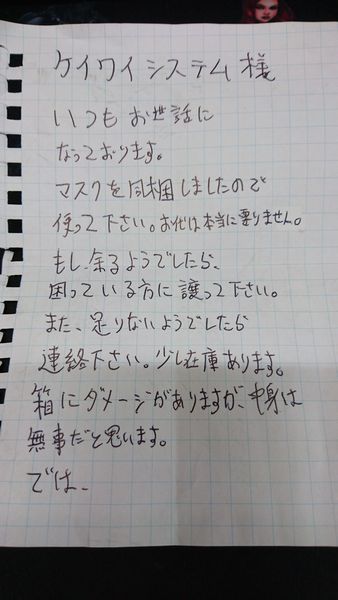 ケイワイシステム様
いつもお世話に
なっております。
マスクを同梱しましたので
使って下さい。お代は本当に要りません。
もし、余るようでしたら、
困っている方に譲って下さい。
また、足りないようでしたら
連絡下さい。少し在庫あります。
箱にダメージがありますが、中身は
無事だと思います。
では、